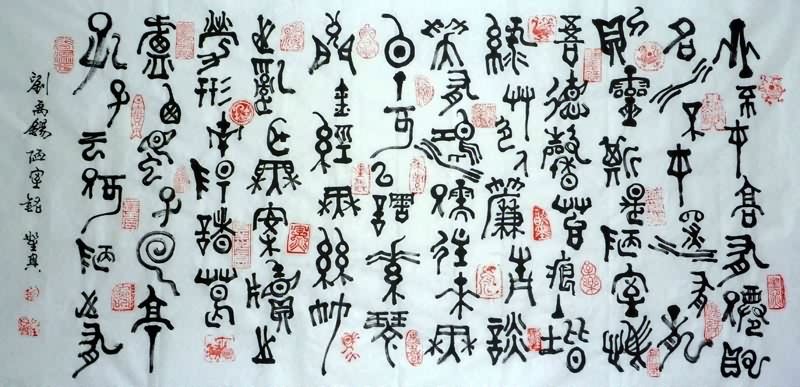 山不在高有僊則
名水不在深有龍
則靈斯是陋室惟
吾德馨苔痕上階
綠艸色入簾青談
笑有鴻儒往來無
白丁可以調素琴
閱金經無絲竹
之亂耳無案牘之
勞形南陽諸葛
廬西蜀子雲亭
孔子云何陋之有
劉禹錫陋室銘